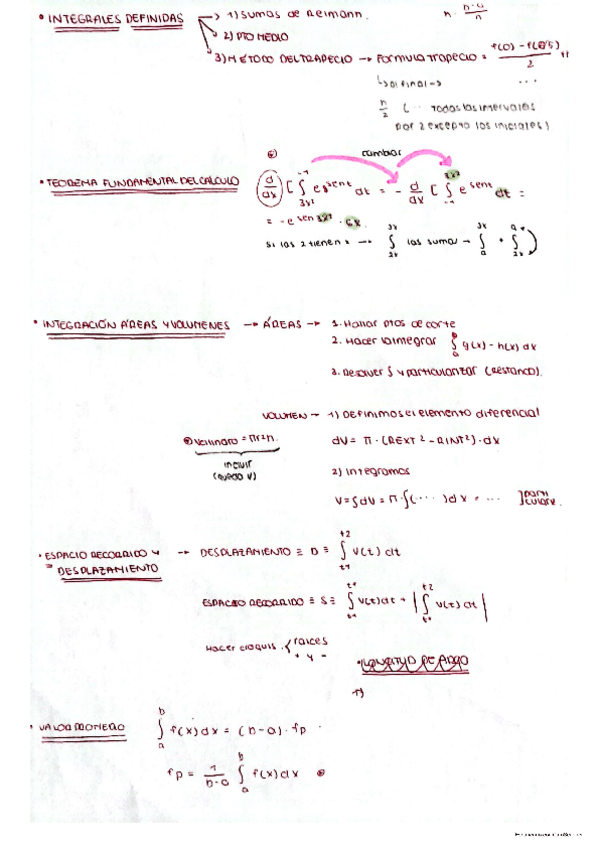 • INTEGRALES DEFINIDAS → 1) SUMAS DE REIMANN. h = (b-a)/n
2) PTO MEDIO
3) MÉTODO DEL TRAPECIO → FORMULA TRAPECIO =
↳ al final →  ...
n/2 (... Todos los intervalos
por 2 excepto los iniciales)
cambiar
• TEOREMA FUNDAMENTAL DEL CALCULO
d/dx [∫ e^sent dt = - d/dx [∫ e^sent dt =
Si los 2 tienen x → ∫ las suma → ∫ + ∫
• INTEGRACIÓN ÁREAS Y VOLUMENES → ÁREAS → 1. Hallar ptos de corte
2. Hacer la integral ∫ g(x) - h(x) dx
3. Resolver ∫ y particularizar (RESTANDO).
VOLUMEN → 1) Definimos el elemento diferencial
V cilindro = πr²h. dV = π · (REXT² - RINT²) · dx
2) Integramos
V = ∫dV = π · ∫(...) dx = ...
• ESPACIO RECORRIDO Y → DESPLAZAMIENTO ≡ D ≡ ∫ v(t) dt
DESPLAZAMIENTO
ESPACIO RECORRIDO ≡ S ≡ ∫ v(t) dt + |∫ v(t) dt|
Hacer croquis. { raices
+ y -
• LONGITUD DE ARCO
1)
• VALOR PROMEDIO ∫ₐᵇ f(x) dx = (b-a) · fp
fp = 1/(b-a) ∫ₐᵇ f(x) dx